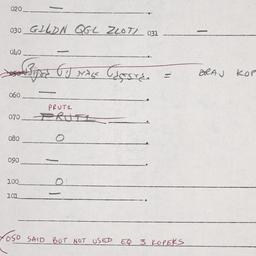 020 —
030 GILDN QGL ZLOTI 031 —
040 —
050 = BRAJ KOP
060 —
PRUTL
070 PRUTL
080 0
090 —
100 0
101 —
050 SAID BUT NOT USED EQ 3 KOPEKS